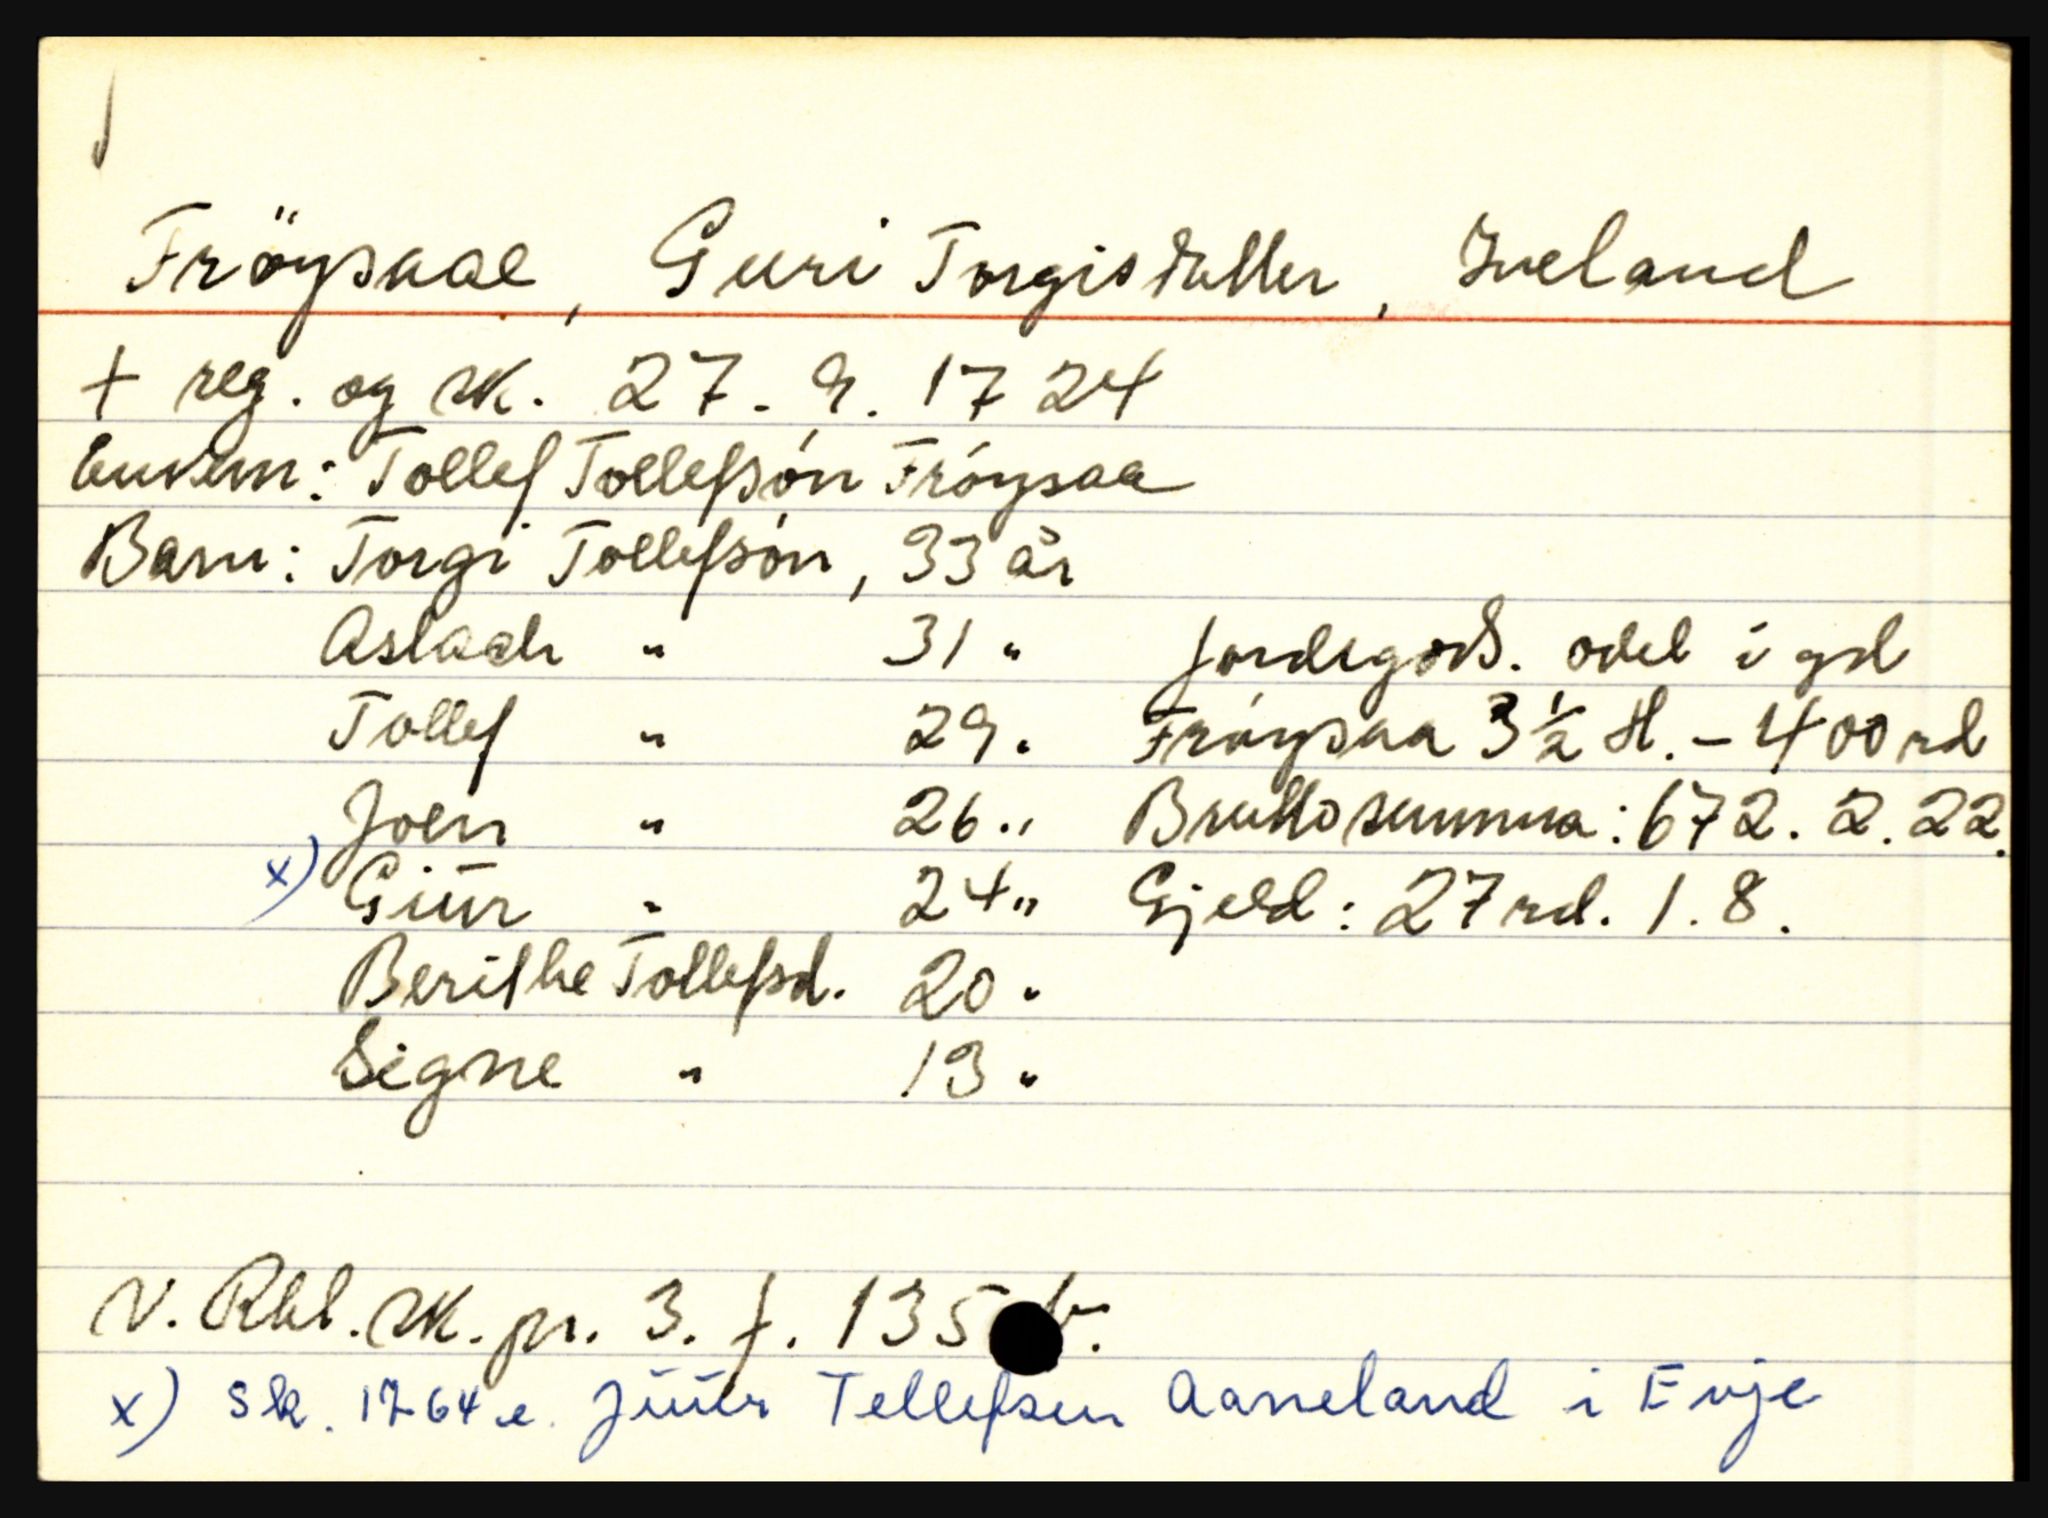 Fröysaae, Guri Torgisdatter, Iveland
+ reg. og sk. 27. 9. 1724
Enkem: Tollef Tollefsón Fróysaa
Barn: Torgi Tollefsón, 33 år
Aslach " 31 " Jordegods. odel i gd
Tollef " 29 " Fróysaa 3 1/2 hl. - 400 rd
Joen " 26 " Bruttosumma: 672. 2. 22.
x) Giür " 24 " Gjeld: 27 rd. 1. 8.
Berithe Tollefsd. 20 "
Signe " 13 "
N. Rbl. sk. pr. 3. f. 135 b.
x) Sk. 1764 e. Jüür Tellefsen Aaneland i Evje